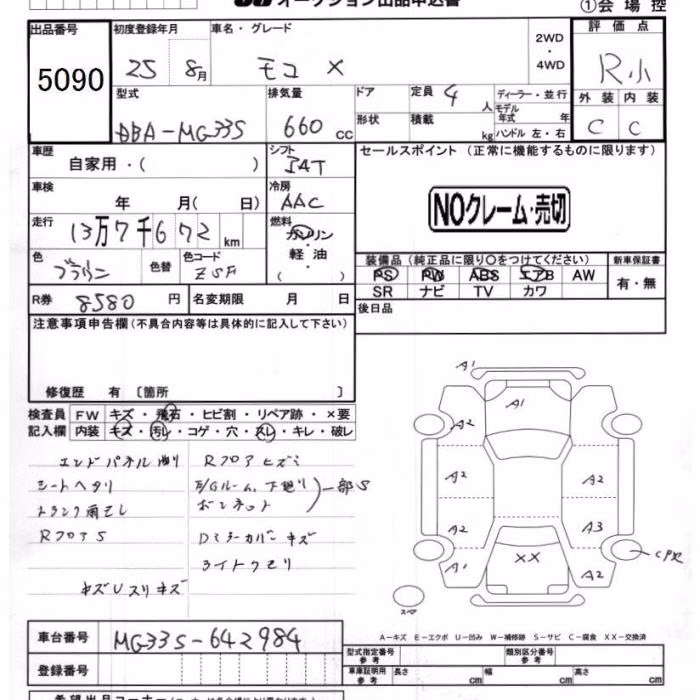 オークション出品申込書
①会場控
出品番号 初度登録年月 車名・グレード 評価点
5090 25 8月 モコ X 2WD・4WD R小
型式 排気量 ドア 定員 4人 ディーラー・並行 外装 内装
DBA-MG33S 660cc 形状 積載 kg モデル年式 年 ハンドル 左・右 C C
車歴 シフト セールスポイント (正常に機能するものに限ります)
自家用・( ) IAT
車検 冷房
年 月( 日) AAC NOクレーム・売切
走行 燃料
13万7千672km ガソリン・軽油
色 色替 色コード ( ) 装備品(純正品に限り○をつけてください) 新車保証書
ブラウン ZSF PS PW ABS エアB AW 有・無
SR ナビ TV カワ
R券 8580円 名変期限 月 日 後日品
注意事項申告欄(不具合内容等は具体的に記入して下さい)
修復歴 有 〔箇所 〕
検査員 FW キズ・飛石・ヒビ割・リペア跡・×要
記入欄 内装 キズ・汚れ・コゲ・穴・スレ・キレ・破レ
エンドパネル曲り Rフロアヒズミ
シートヘタリ
トランク雨モレ ボンネット 一部S
RフロアS Dミラーカバーキズ
ライトクモリ
キズUスリキズ
A1
A1
A2
A2 A2
A2 A3
A1 XX A2
スペア
A-キズ E-エクボ U-凹み W-補修跡 S-サビ C-腐食 XX-交換済
車台番号 MG33S-642984
登録番号
型式指定番号 参考 類別区分番号 参考
車庫証明用 参考 長さ cm 幅 cm 高さ cm